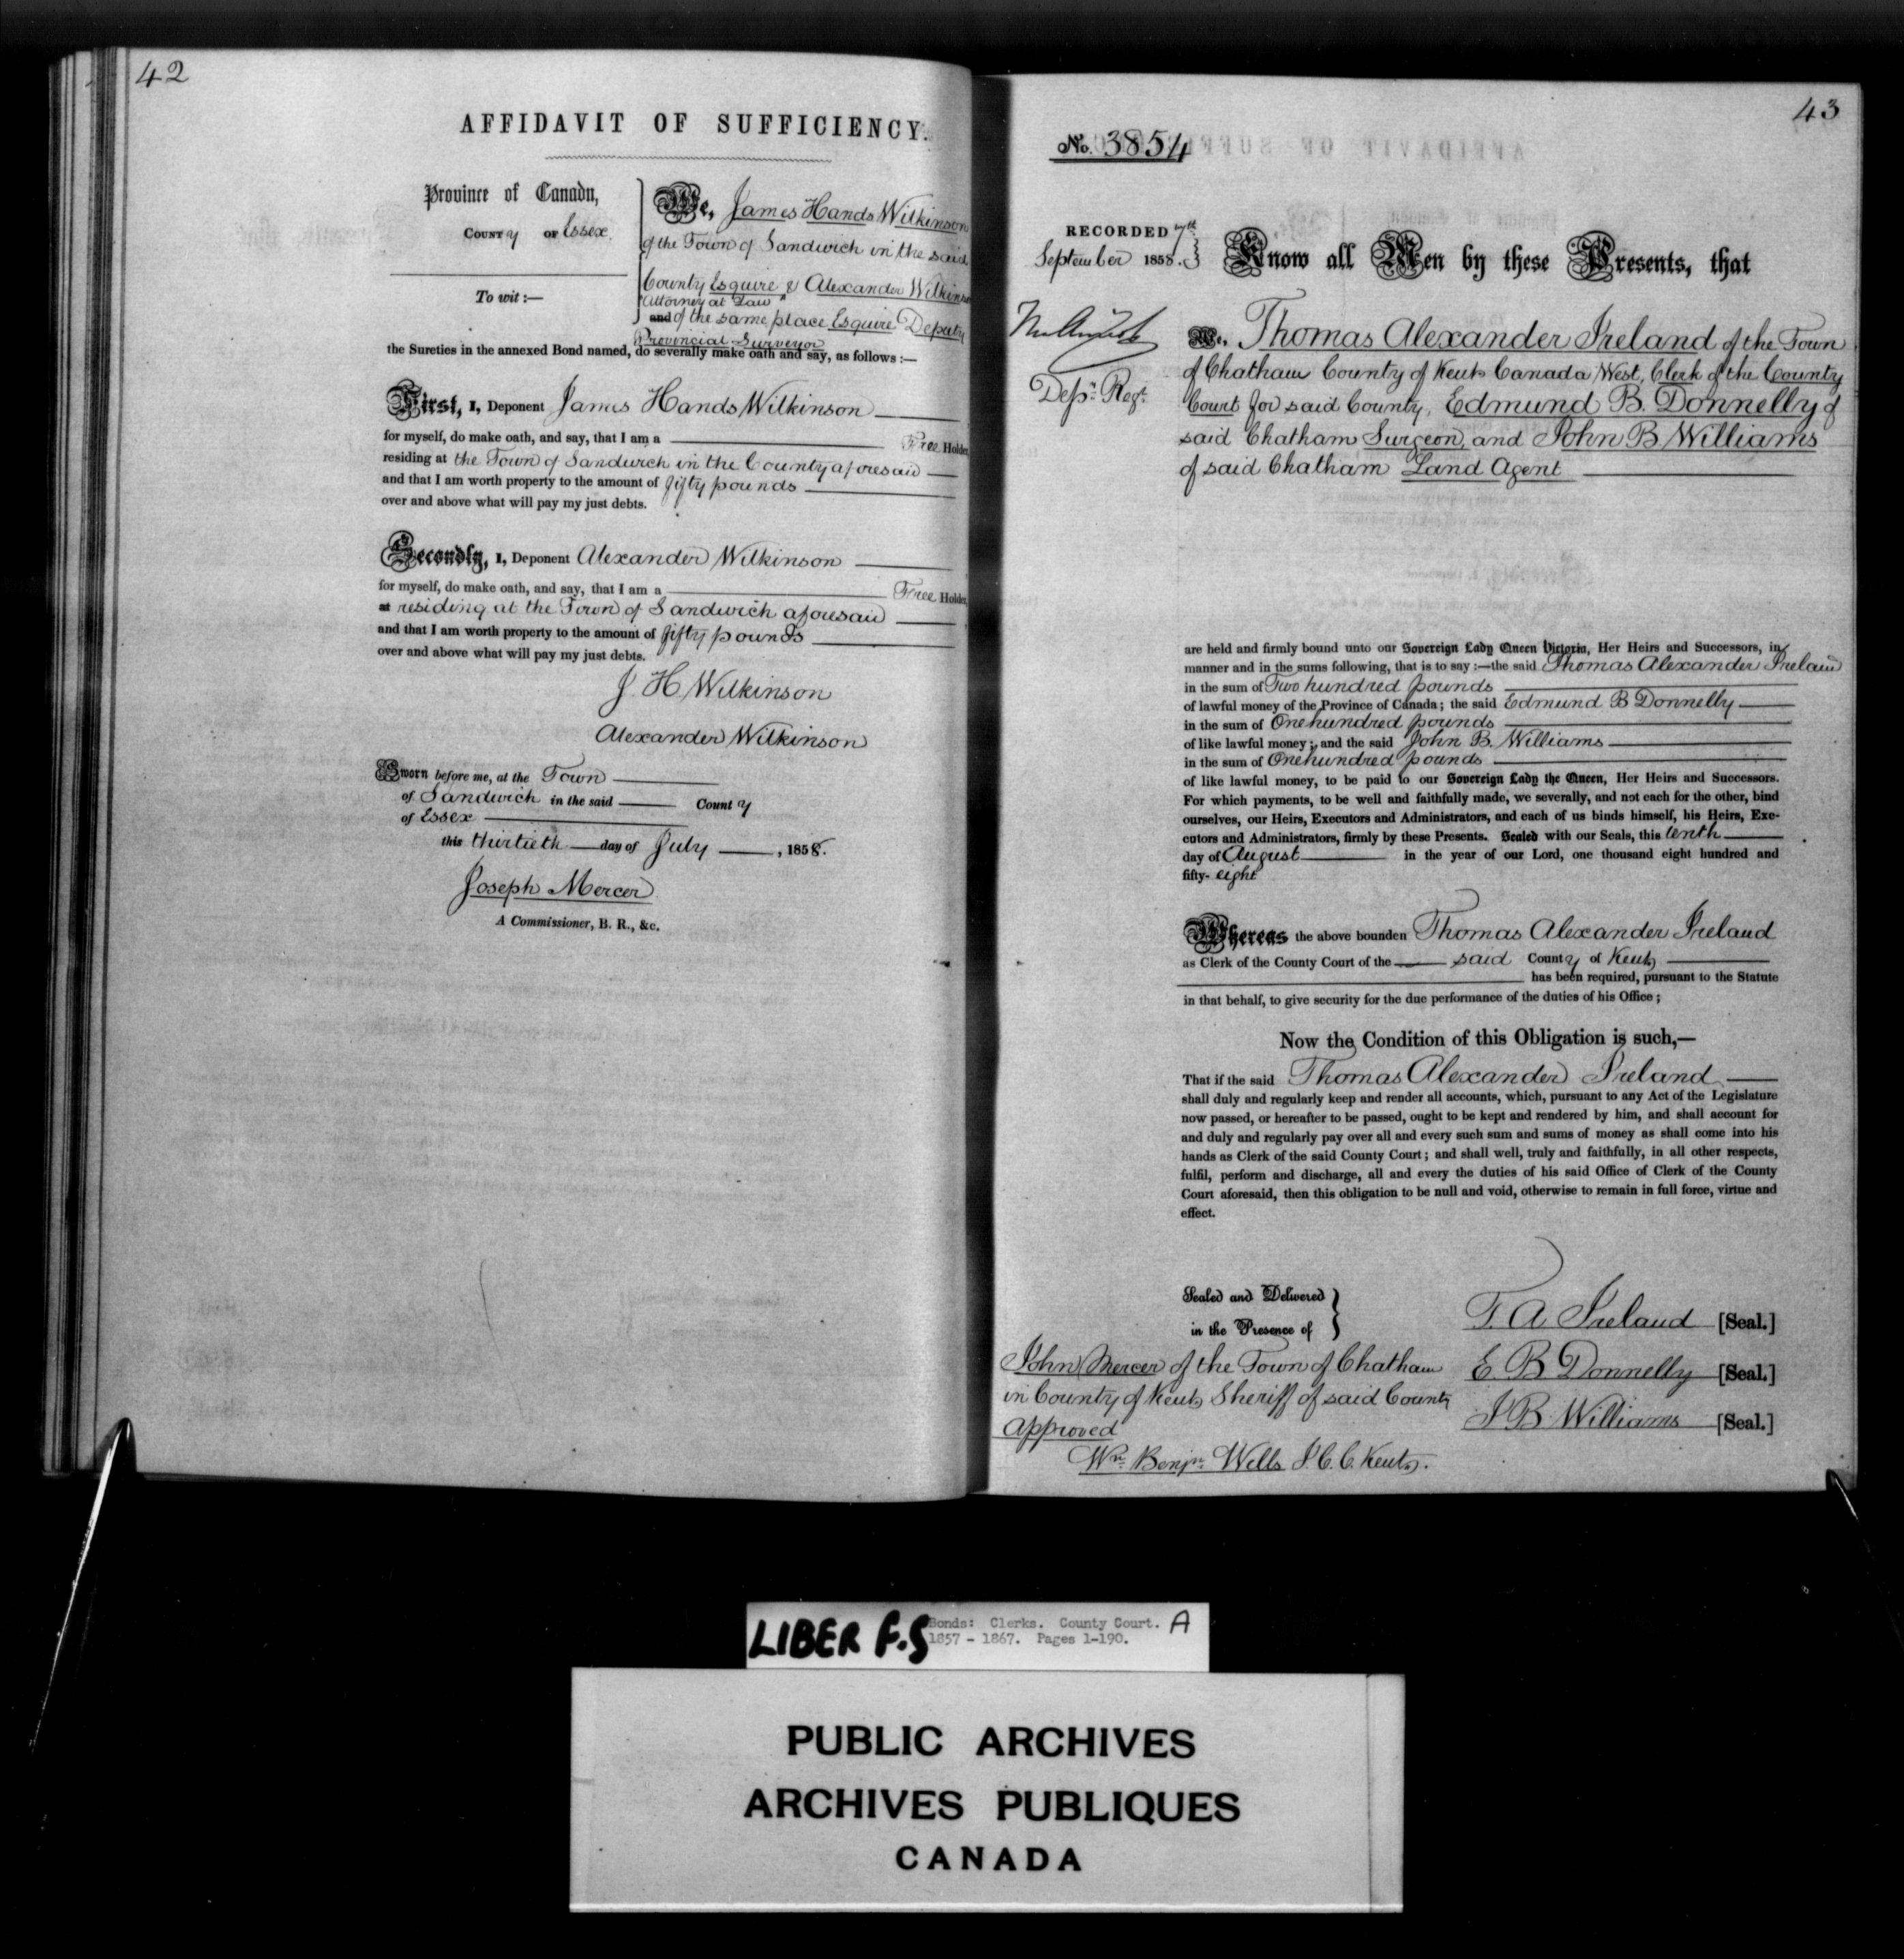 42
AFFIDAVIT OF SUFFICIENCY.
Province of Canada,
County of Essex.
To wit:—
We, James Hands Wilkinson
of the Town of Sandwich in the said
County Esquire & Alexander Wilkinson
Attorney at Law
and of the same place Esquire Deputy
Provincial Surveyor
the Sureties in the annexed Bond named, do severally make oath and say, as follows:—
First, I, Deponent James Hands Wilkinson
for myself, do make oath, and say, that I am a Free Holder
residing at the Town of Sandwich in the County aforesaid
and that I am worth property to the amount of fifty pounds
over and above what will pay my just debts.
Secondly, I, Deponent Alexander Wilkinson
for myself, do make oath, and say, that I am a Free Holder
at residing at the Town of Sandwich aforesaid
and that I am worth property to the amount of fifty pounds
over and above what will pay my just debts.
J. H Wilkinson
Alexander Wilkinson
Sworn before me, at the Town
of Sandwich in the said County
of Essex
this thirtieth day of July, 1858.
Joseph Mercer
A Commissioner, B. R., &c.
43
No. 3854
RECORDED 7th
September 1858.
Know all Men by these Presents, that
Depy. Regt.
We, Thomas Alexander Ireland of the Town
of Chatham County of Kent Canada West, Clerk of the County
Court for said County, Edmund B. Donnelly of
said Chatham Surgeon, and John B Williams
of said Chatham Land Agent
are held and firmly bound unto our Sovereign Lady Queen Victoria, Her Heirs and Successors, in
manner and in the sums following, that is to say:—the said Thomas Alexander Ireland
in the sum of Two hundred pounds
of lawful money of the Province of Canada; the said Edmund B Donnelly
in the sum of One hundred pounds
of like lawful money; and the said John B. Williams
in the sum of One hundred pounds
of like lawful money, to be paid to our Sovereign Lady the Queen, Her Heirs and Successors.
For which payments, to be well and faithfully made, we severally, and not each for the other, bind
ourselves, our Heirs, Executors and Administrators, and each of us binds himself, his Heirs, Exe-
cutors and Administrators, firmly by these Presents. Sealed with our Seals, this tenth
day of August in the year of our Lord, one thousand eight hundred and
fifty- eight
Whereas the above bounden Thomas Alexander Ireland
as Clerk of the County Court of the said County of Kent
has been required, pursuant to the Statute
in that behalf, to give security for the due performance of the duties of his Office;
Now the Condition of this Obligation is such,—
That if the said Thomas Alexander Ireland
shall duly and regularly keep and render all accounts, which, pursuant to any Act of the Legislature
now passed, or hereafter to be passed, ought to be kept and rendered by him, and shall account for
and duly and regularly pay over all and every such sum and sums of money as shall come into his
hands as Clerk of the said County Court; and shall well, truly and faithfully, in all other respects,
fulfil, perform and discharge, all and every the duties of his said Office of Clerk of the County
Court aforesaid, then this obligation to be null and void, otherwise to remain in full force, virtue and
effect.
Sealed and Delivered
in the Presence of
John Mercer of the Town of Chatham
in County of Kent Sheriff of said County
Approved
Wm. Benjn. Wells J. C. C. Kent.
T. A Ireland [Seal.]
E. B Donnelly [Seal.]
J B Williams [Seal.]
LIBER F.S
Bonds: Clerks. County Court. A
1857 - 1867. Pages 1-190.
PUBLIC ARCHIVES
ARCHIVES PUBLIQUES
CANADA